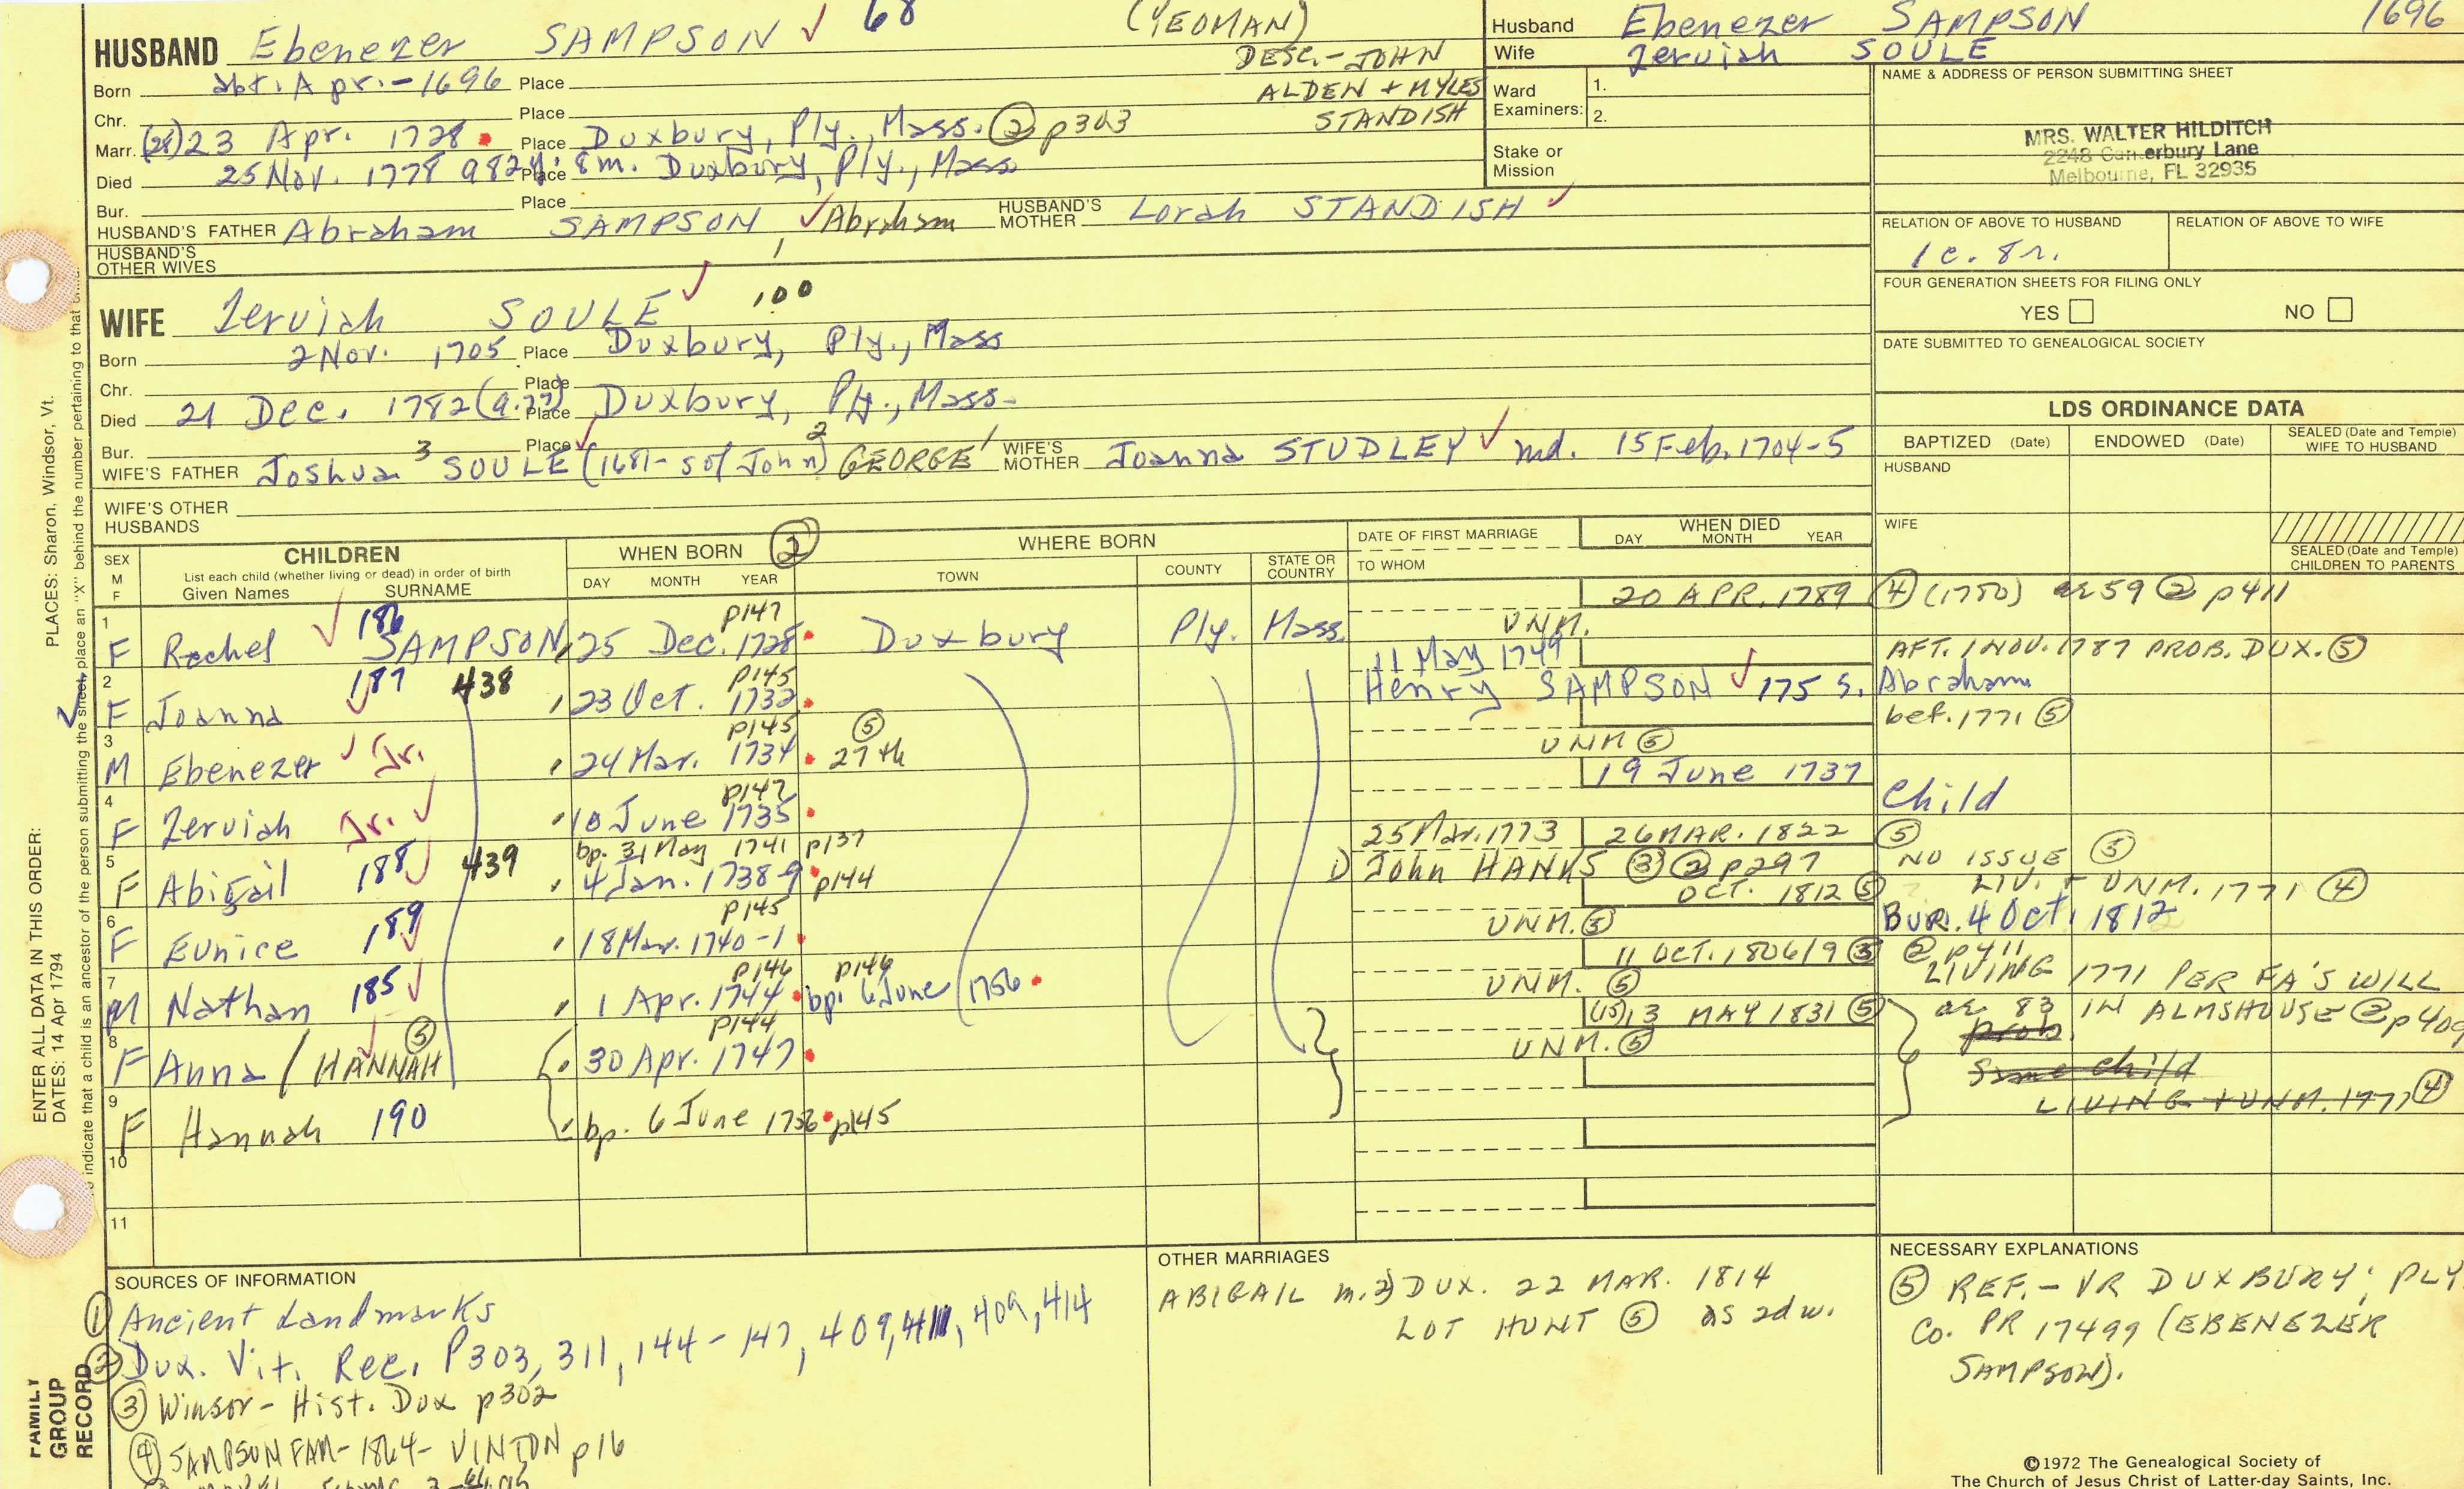 HUSBAND Ebenezer SAMPSON ✓ 68 (YEOMAN)
DESC.-JOHN
ALDEN + MYLES
STANDISH
Born abt. Apr.-1696 Place
Chr. Place
Marr. (28) 23 Apr. 1728 Place Duxbury, Ply., Mass. ② p303
Died 25 Nov. 1778 a 82 y. 8m. Place Duxbury, Ply., Mass
Bur. Place
HUSBAND'S FATHER Abraham SAMPSON ✓ Abraham 1 HUSBAND'S MOTHER Lorah STANDISH ✓
HUSBAND'S OTHER WIVES
WIFE Zeruiah SOULE ✓ 100
Born 2 Nov. 1705 Place Duxbury, Ply., Mass
Chr. Place
Died 21 Dec. 1782 (a.77) Place Duxbury, Ply., Mass.
Bur. Place
WIFE'S FATHER Joshua 3 SOULE ✓ (1681- s of John 2) GEORGE 1 WIFE'S MOTHER Joanna STUDLEY ✓ md. 15 Feb. 1704-5
WIFE'S OTHER HUSBANDS
Husband Ebenezer SAMPSON 1696
Wife Zeruiah SOULE
Ward 1.
Examiners: 2.
Stake or Mission
NAME & ADDRESS OF PERSON SUBMITTING SHEET
MRS. WALTER HILDITCH
2248 Canterbury Lane
Melbourne, FL 32935
RELATION OF ABOVE TO HUSBAND RELATION OF ABOVE TO WIFE
1c. 8r.
FOUR GENERATION SHEETS FOR FILING ONLY
YES NO
DATE SUBMITTED TO GENEALOGICAL SOCIETY
LDS ORDINANCE DATA
BAPTIZED (Date) ENDOWED (Date) SEALED (Date and Temple) WIFE TO HUSBAND
HUSBAND
WIFE
SEALED (Date and Temple) CHILDREN TO PARENTS
SEX M F CHILDREN List each child (whether living or dead) in order of birth Given Names SURNAME
WHEN BORN ② DAY MONTH YEAR
WHERE BORN TOWN COUNTY STATE OR COUNTRY
DATE OF FIRST MARRIAGE TO WHOM
WHEN DIED DAY MONTH YEAR
1 F Rachel ✓ 186 SAMPSON 25 Dec. 1728 p147 Duxbury Ply. Mass. UNM. 20 APR. 1789 ④ (1780) ae 59 ② p411
2 F Joanna 187 ✓ 438 23 Oct. 1732 p145 11 May 1749 Henry SAMPSON ✓ 175 s. Abraham AFT. 1 NOV. 1787 PROB. DUX. ⑤
3 M Ebenezer ✓ Jr. 24 Mar. 1734 p145 ⑤ 27th UNM ⑤ bef. 1771 ⑤
4 F Zeruiah Jr. ✓ 10 June 1735 p147 19 June 1737 Child
5 F Abigail 188 ✓ 439 bp. 31 May 1741 p137 4 Jan. 1738-9 p144 25 Mar. 1773 1) John HANKS ③ ② p297 26 MAR. 1822 ⑤ NO ISSUE ⑤
6 F Eunice 189 ✓ 18 Mar. 1740-1 p145 UNM. ⑤ OCT. 1812 ⑤ LIV. + UNM. 1771 ④ BUR. 4 Oct. 1812 ② p411
7 M Nathan 185 ✓ 1 Apr. 1744 p146 bp. 6 June 1756 p146 UNM. ⑤ 11 OCT. 1806/9 ⑤ LIVING 1771 PER FA'S WILL
8 F Anna / HANNAH ⑤ 30 Apr. 1747 p144 UNM. ⑤ (15) 13 MAY 1831 ⑤ ae 83 IN ALMSHOUSE ② p409
prob.
Same child
LIVING + UNM. 1771 ④
9 F Hannah 190 bp. 6 June 1756 p145
10
11
SOURCES OF INFORMATION
① Ancient Landmarks
② Dux. Vit. Rec. P303, 311, 144-147, 409, 411, 409, 414
③ Winsor - Hist. Dux p302
④ SAMPSON FAM- 1864- VINTON p16
OTHER MARRIAGES
ABIGAIL m. 2) DUX. 22 MAR. 1814
LOT HUNT ⑤ as 2d w.
NECESSARY EXPLANATIONS
⑤ REF.- VR DUXBURY; PLY
Co. PR 17499 (EBENEZER
SAMPSON).
©1972 The Genealogical Society of
The Church of Jesus Christ of Latter-day Saints, Inc.
PLACES: Sharon, Windsor, Vt.
ENTER ALL DATA IN THIS ORDER:
DATES: 14 Apr 1794
indicate that a child is an ancestor of the person submitting the sheet, place an "X" behind the number pertaining to that
FAMILY GROUP RECORD